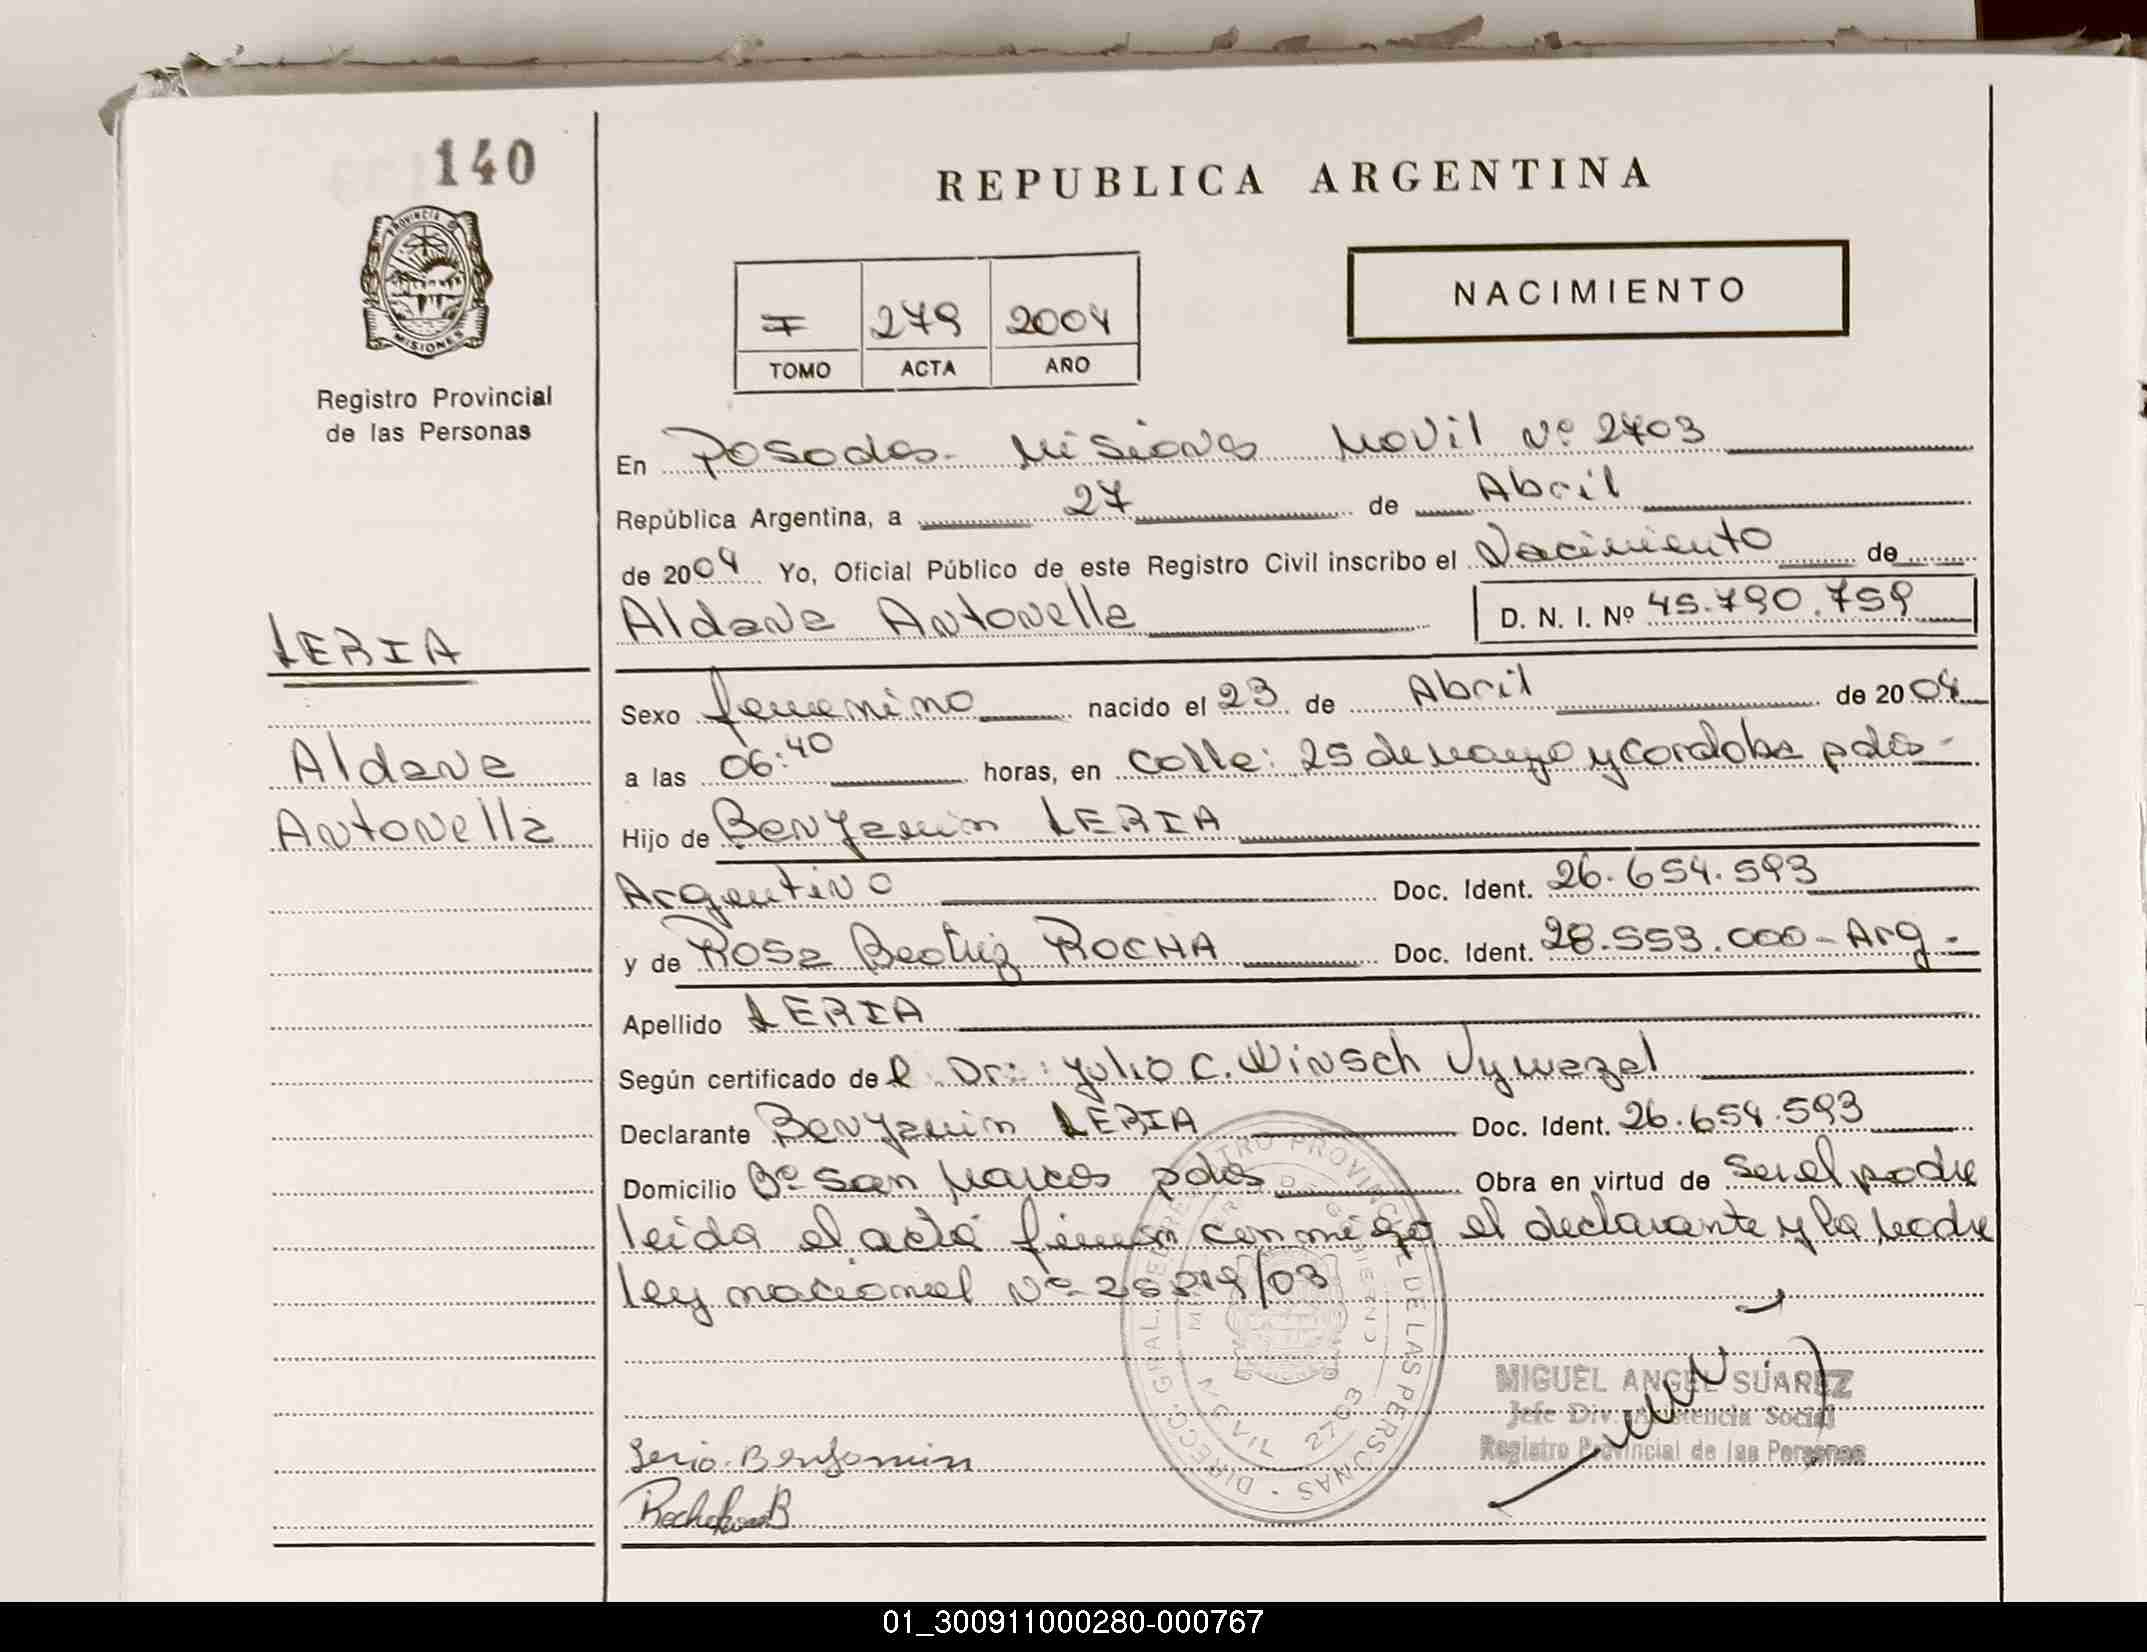 140
PROVINCIA DE
MISIONES
Registro Provincial
de las Personas
REPUBLICA ARGENTINA
NACIMIENTO
I 279 2004
TOMO ACTA AÑO
En Posadas - Misiones Movil Nº 2703
República Argentina, a 27 de Abril
de 2004 Yo, Oficial Público de este Registro Civil inscribo el Nacimiento de
Aldana Antonella D. N. I. Nº 45.790.759
LERIA
Aldana
Antonella
Sexo femenino nacido el 23 de Abril de 2004
a las 06:40 horas, en Calle: 25 de mayo y Cordoba pdas-
Hijo de Benjamin LERIA
Argentino Doc. Ident. 26.654.593
y de Rosa Beatriz ROCHA Doc. Ident. 28.553.000-Arg-
Apellido LERIA
Según certificado del Dr: Julio C. Winsch Vymazal
Declarante Benjamin LERIA Doc. Ident. 26.654.593
Domicilio Bº San Marcos pdas Obra en virtud de ser el padre
leida el acta firman conmigo el declarante y la madre
ley nacional Nº 25819/03
DIRECC. GRAL. DEL REGISTRO PROVINCIAL DE LAS PERSONAS
MOVIL 2703
MIGUEL ANGEL SUAREZ
Jefe Div. Asistencia Social
Registro Provincial de las Personas
Leria Benjamin
Rocha Rosa B
01_300911000280-000767